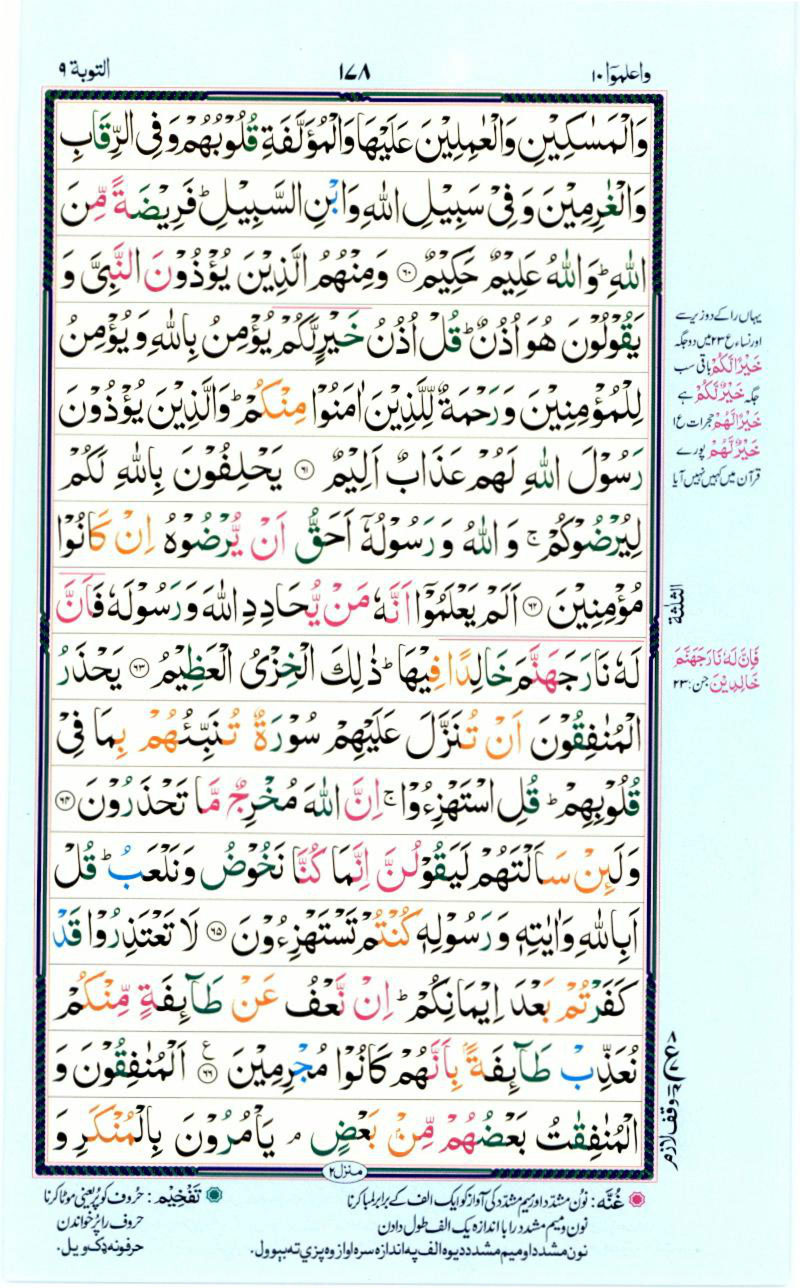 واعلموا ١٠
١٧٨
التوبة ٩
وَالْمَسٰكِيْنِ وَالْعٰمِلِيْنَ عَلَيْهَا وَالْمُؤَلَّفَةِ قُلُوْبُهُمْ وَفِى الرِّقَابِ
وَالْغٰرِمِيْنَ وَفِىْ سَبِيْلِ اللّٰهِ وَابْنِ السَّبِيْلِؕ فَرِيْضَةً مِّنَ
اللّٰهِؕ وَاللّٰهُ عَلِيْمٌ حَكِيْمٌ ۝٦٠ وَمِنْهُمُ الَّذِيْنَ يُؤْذُوْنَ النَّبِىَّ وَ
يَقُوْلُوْنَ هُوَ اُذُنٌؕ قُلْ اُذُنُ خَيْرٍ لَّكُمْ يُؤْمِنُ بِاللّٰهِ وَيُؤْمِنُ
لِلْمُؤْمِنِيْنَ وَرَحْمَةٌ لِّلَّذِيْنَ اٰمَنُوْا مِنْكُمْؕ وَالَّذِيْنَ يُؤْذُوْنَ
رَسُوْلَ اللّٰهِ لَهُمْ عَذَابٌ اَلِيْمٌ ۝٦١ يَحْلِفُوْنَ بِاللّٰهِ لَكُمْ
لِيُرْضُوْكُمْۚ وَاللّٰهُ وَرَسُوْلُهٗٓ اَحَقُّ اَنْ يُّرْضُوْهُ اِنْ كَانُوْا
مُؤْمِنِيْنَ ۝٦٢ اَلَمْ يَعْلَمُوْٓا اَنَّهٗ مَنْ يُّحَادِدِ اللّٰهَ وَرَسُوْلَهٗ فَاَنَّ
لَهٗ نَارَ جَهَنَّمَ خَالِدًا فِيْهَاؕ ذٰلِكَ الْخِزْىُ الْعَظِيْمُ ۝٦٣ يَحْذَرُ
الْمُنٰفِقُوْنَ اَنْ تُنَزَّلَ عَلَيْهِمْ سُوْرَةٌ تُنَبِّئُهُمْ بِمَا فِىْ
قُلُوْبِهِمْؕ قُلِ اسْتَهْزِءُوْاۚ اِنَّ اللّٰهَ مُخْرِجٌ مَّا تَحْذَرُوْنَ ۝٦٤
وَلَئِنْ سَاَلْتَهُمْ لَيَقُوْلُنَّ اِنَّمَا كُنَّا نَخُوْضُ وَنَلْعَبُؕ قُلْ
اَبِاللّٰهِ وَاٰيٰتِهٖ وَرَسُوْلِهٖ كُنْتُمْ تَسْتَهْزِءُوْنَ ۝٦٥ لَا تَعْتَذِرُوْا قَدْ
كَفَرْتُمْ بَعْدَ اِيْمَانِكُمْؕ اِنْ نَّعْفُ عَنْ طَآئِفَةٍ مِّنْكُمْ
نُعَذِّبْ طَآئِفَةًۢ بِاَنَّهُمْ كَانُوْا مُجْرِمِيْنَ ۝٦٦ع اَلْمُنٰفِقُوْنَ وَ
الْمُنٰفِقٰتُ بَعْضُهُمْ مِّنْۢ بَعْضٍۘ يَاْمُرُوْنَ بِالْمُنْكَرِ وَ
یہاں را کے دو زیر سے
اور نساء ع ۲۳ میں دو جگہ
خَيْرًا لَّكُمْ باقی سب
جگہ خَيْرٌ لَّكُمْ ہے
خَيْرًا لَّهُمْ حجرات ع ۱
خَيْرٌ لَّهُمْ پورے
قرآن میں کہیں نہیں آیا
الثلثة
فَاِنَّ لَهٗ نَارَ جَهَنَّمَ
خَالِدِيْنَ جن: ۲۳
وقف لازم
منزل ٢
غُنّه: نون مشدد اور میم مشدد کی آواز کو ایک الف کے برابر لمبا کرنا
نون و میم مشدد را با اندازه یک الف طول دادن
نون مشدد او میم مشدد دیوه الف په اندازه سره اواز وو پزې ته بیوول.
تَفْخِیْم: حروف کو پُر یعنی موٹا کرنا
حروف را پُر خواندن
حرفونه ډک ویل.